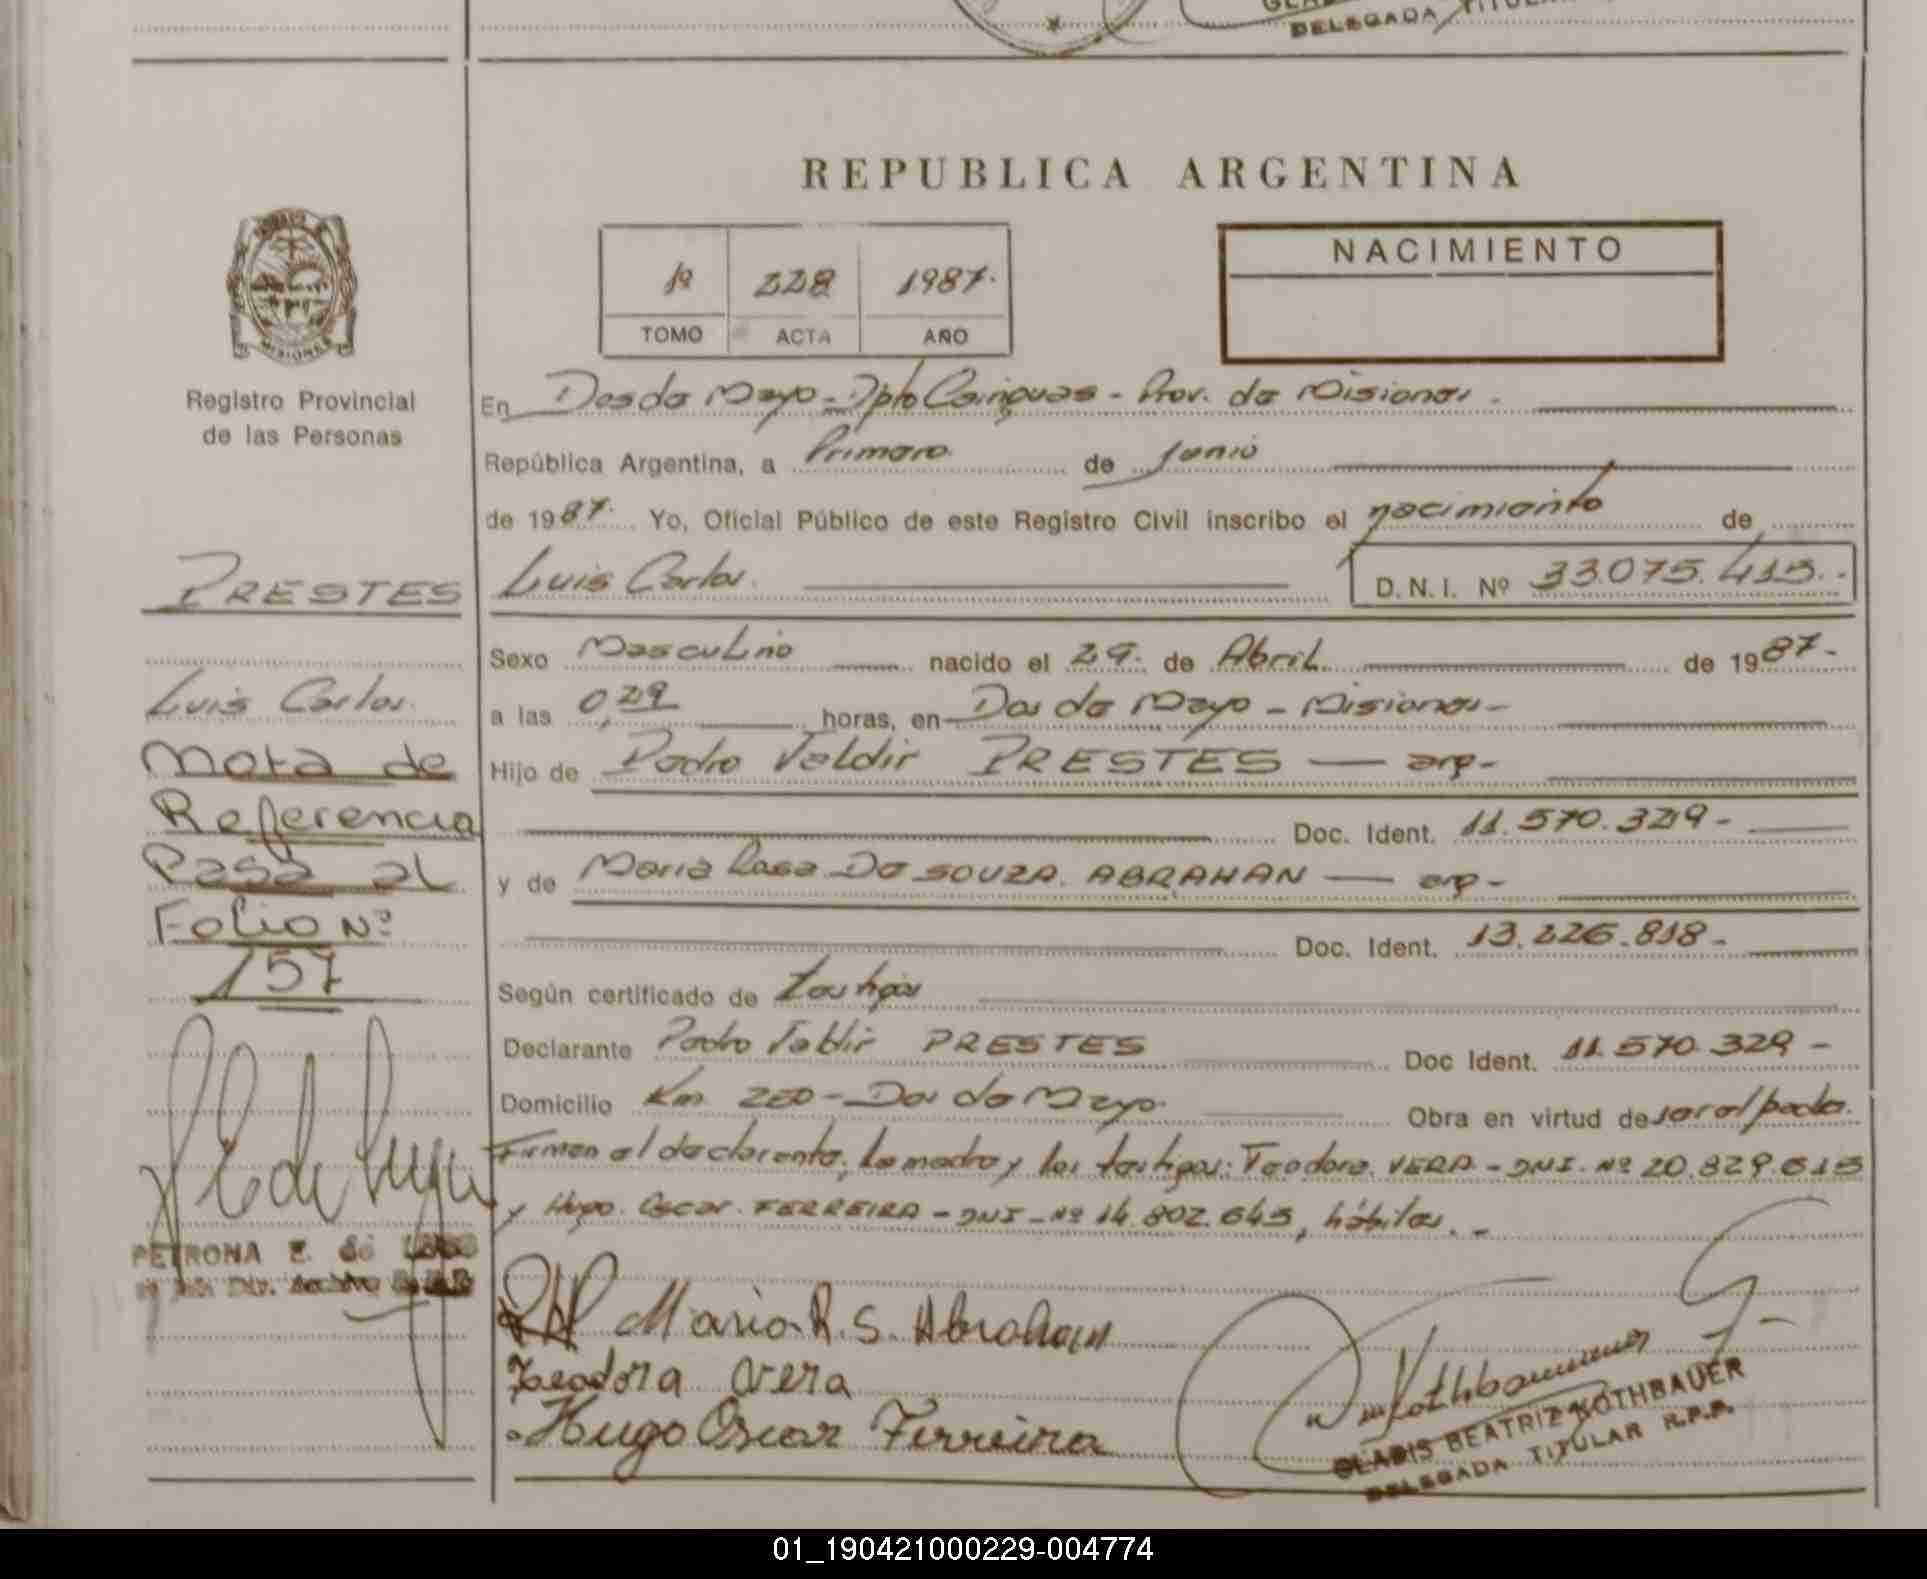 DELEGADA TITULAR
REPUBLICA ARGENTINA
MISIONES
Registro Provincial
de las Personas
1º 228 1987.
TOMO ACTA AÑO
NACIMIENTO
En Dos de Mayo - Dpto Cainguas - Prov. de Misiones -
República Argentina, a Primero de Junio
de 1987. Yo, Oficial Público de este Registro Civil inscribo el nacimiento de
PRESTES Luis Carlos. D.N.I. Nº 33.075.413.-
Sexo Masculino nacido el 29. de Abril de 1987-
Luis Carlos. a las horas, en Dos de Mayo - Misiones -
Nota de Hijo de Pedro Valdir PRESTES — arg-
Referencia Doc. Ident. 11.570.329-
Pasa al y de Maria Rosa Da SOUZA ABRAHAN — arg-
Folio Nº Doc. Ident. 13.226.818-
157 Según certificado de testigos
Declarante Pedro Valdir PRESTES Doc Ident. 11.570.329-
Domicilio Km. - Dos de Mayo. Obra en virtud de ser el padre.
Firman el declarante, la madre y los testigos: Teodora VERA - DNI. Nº 20.829.613
y Hugo Oscar FERREIRA - DNI - Nº 14.802.643, hábiles. -
PETRONA E. de
Maria R. S. Abraham
Teodora Vera
Hugo Oscar Ferreira
Kothbauer
GLADIS BEATRIZ KOTHBAUER
DELEGADA TITULAR R.P.P.
01_190421000229-004774